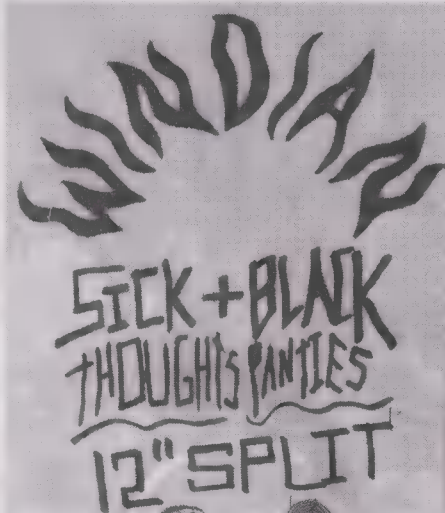 WINDIAN
SICK + BLACK
THOUGHTS PANTIES
12" SPLIT